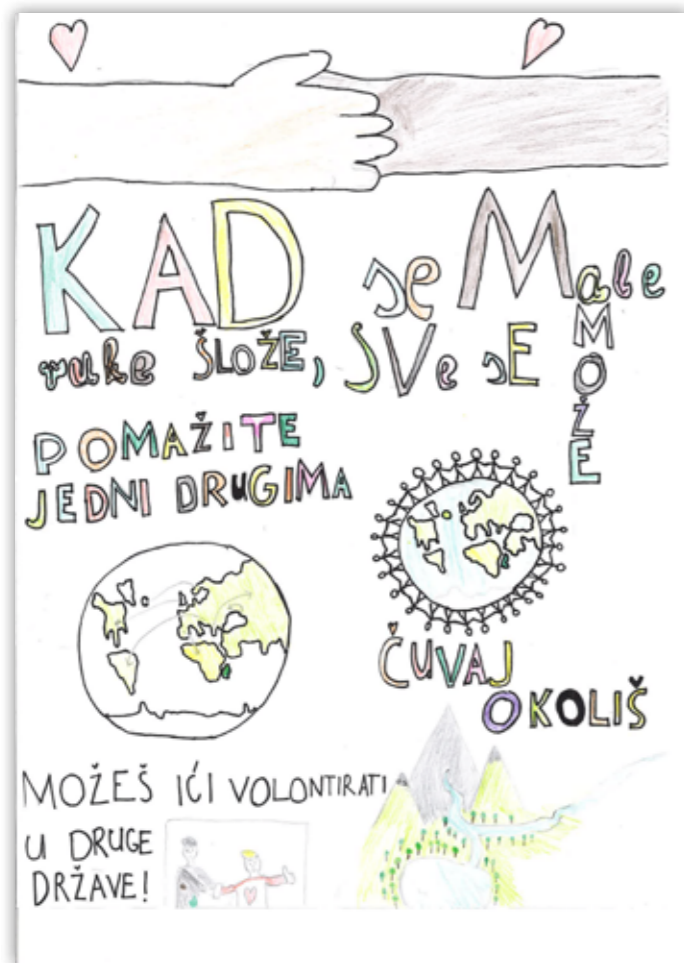 KAD se Male
ruke ŠLOŽE, SVe sE MOŽE
POMAŽITE
JEDNI DRUGIMA
ČUVAJ
OKOLIŠ
MOŽEŠ IĆI VOLONTIRATI
U DRUGE
DRŽAVE!